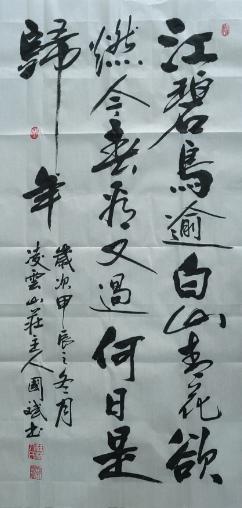 江碧鳥逾白山青花欲
燃今春看又過何日是
歸年
歲次甲辰之冬月
凌雲山莊主人國斌書